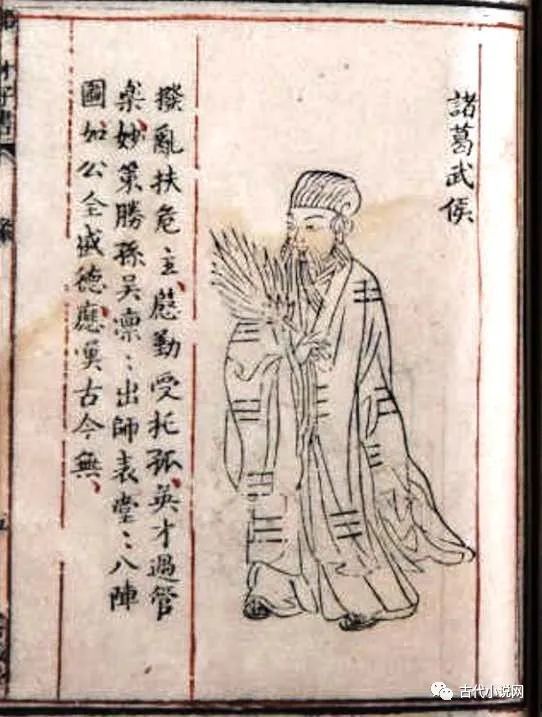 諸葛武侯
撥亂扶危主、慇勤受托孤、英才過管
樂、妙策勝孫吳、凛〻出師表、堂〻八陣
圖、如公全盛德、應嘆古今無、
古代小说网